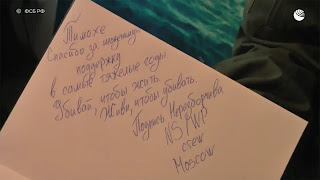 © ФСБ РФ
Тимохе
Спасибо за
поддержку
в самые тяжелые годы
Убивай, чтобы жить.
Живи, чтобы убивать.
Подпись
NS/WP
crew
Moscow